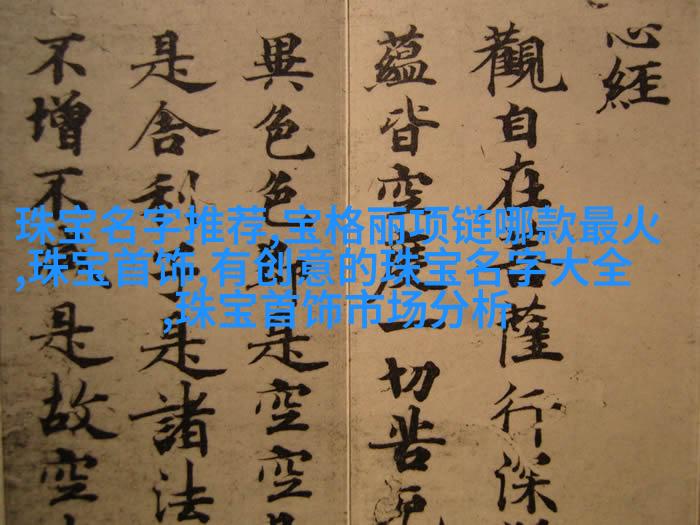 珠宝名字推荐,宝格丽项链哪款最火
,珠宝首饰,有创意的珠宝名字大全
,珠宝首饰市场分析
心經
觀自在菩薩行深
蘊皆空度一切苦厄
異色色即是空空
是舍利子是諸法
不增不是故空